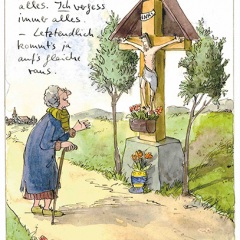 alles. Ich vergess
immer alles.
– Letztendlich
kommts ja
aufs gleiche
raus.
INRI